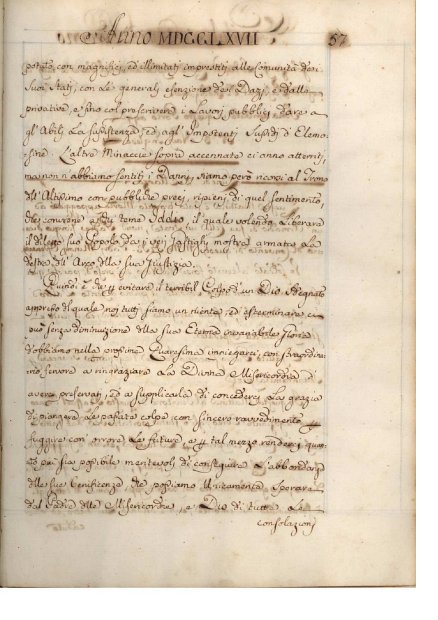 Anno MDCCLXVII 57
potato, con magnifici, ed illimitati imprestiti alle Comunità dei
suoi Stati, con le generali esenzione dei Dazj, e dalle
privative, e sino col prescrivere i Lavori pubblici dare a
gl'Abili La sussistenza, ed agl'Impotenti Sussidj d'Elemo-
sine. L'altre Minaccie sopra accennate ci anno atterriti,
ma non n'abbiamo sentiti i Danni, siamo però ricorsi al Trono
dell'Altissimo con pubbliche preci, ripieni di quel sentimento,
che conviene a chi teme Iddio, il quale volendo liberare
il diletto suo Popolo da i rei gastighi mostra armata La
destra dell'Arco della sua Giustizia.
Quindi è che per evitare il terribil Colpo d'un Dio sdegnato
appresso del quale noi tutti siamo un niente, ed esterminare ci
può senza diminuzione della sua Eterna invariabile Gloria
dobbiamo nella prossima Quaresima impiegare, con straordina-
rio fervore a ringraziare La Divina Misericordia d'
averci preservati, ed a supplicarla di concederci La grazia
di piangere Le passate colpe, con sincero ravvedimento
fuggire con orrore Le future, e per tal mezzo renderci quan-
to più sia possibile meritevoli di conseguire L'abbondanza
delle sue beneficenze, che possiamo unicamente sperare
dal Padre delle Misericordie, e Dio di tutte Le
consolazioni